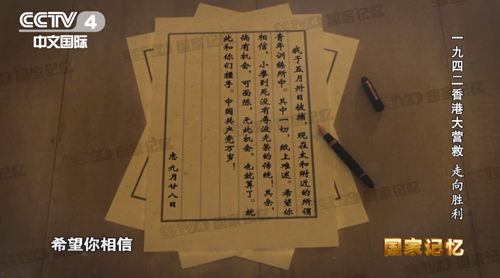 CCTV 4
中文国际
国家记忆
一九四二香港大营救 走向胜利
我于五月卅日被捕，现在太和附近的所谓
青年训练所中。其中一切，纸上难述。希望你
相信，小廖到死没有辱没光荣的传统！其余，
倘有机会，可面陈，无此机会，也就算了。就
此和你们握手。中国共产党万岁！
志 九月廿八日
希望你相信
国家记忆